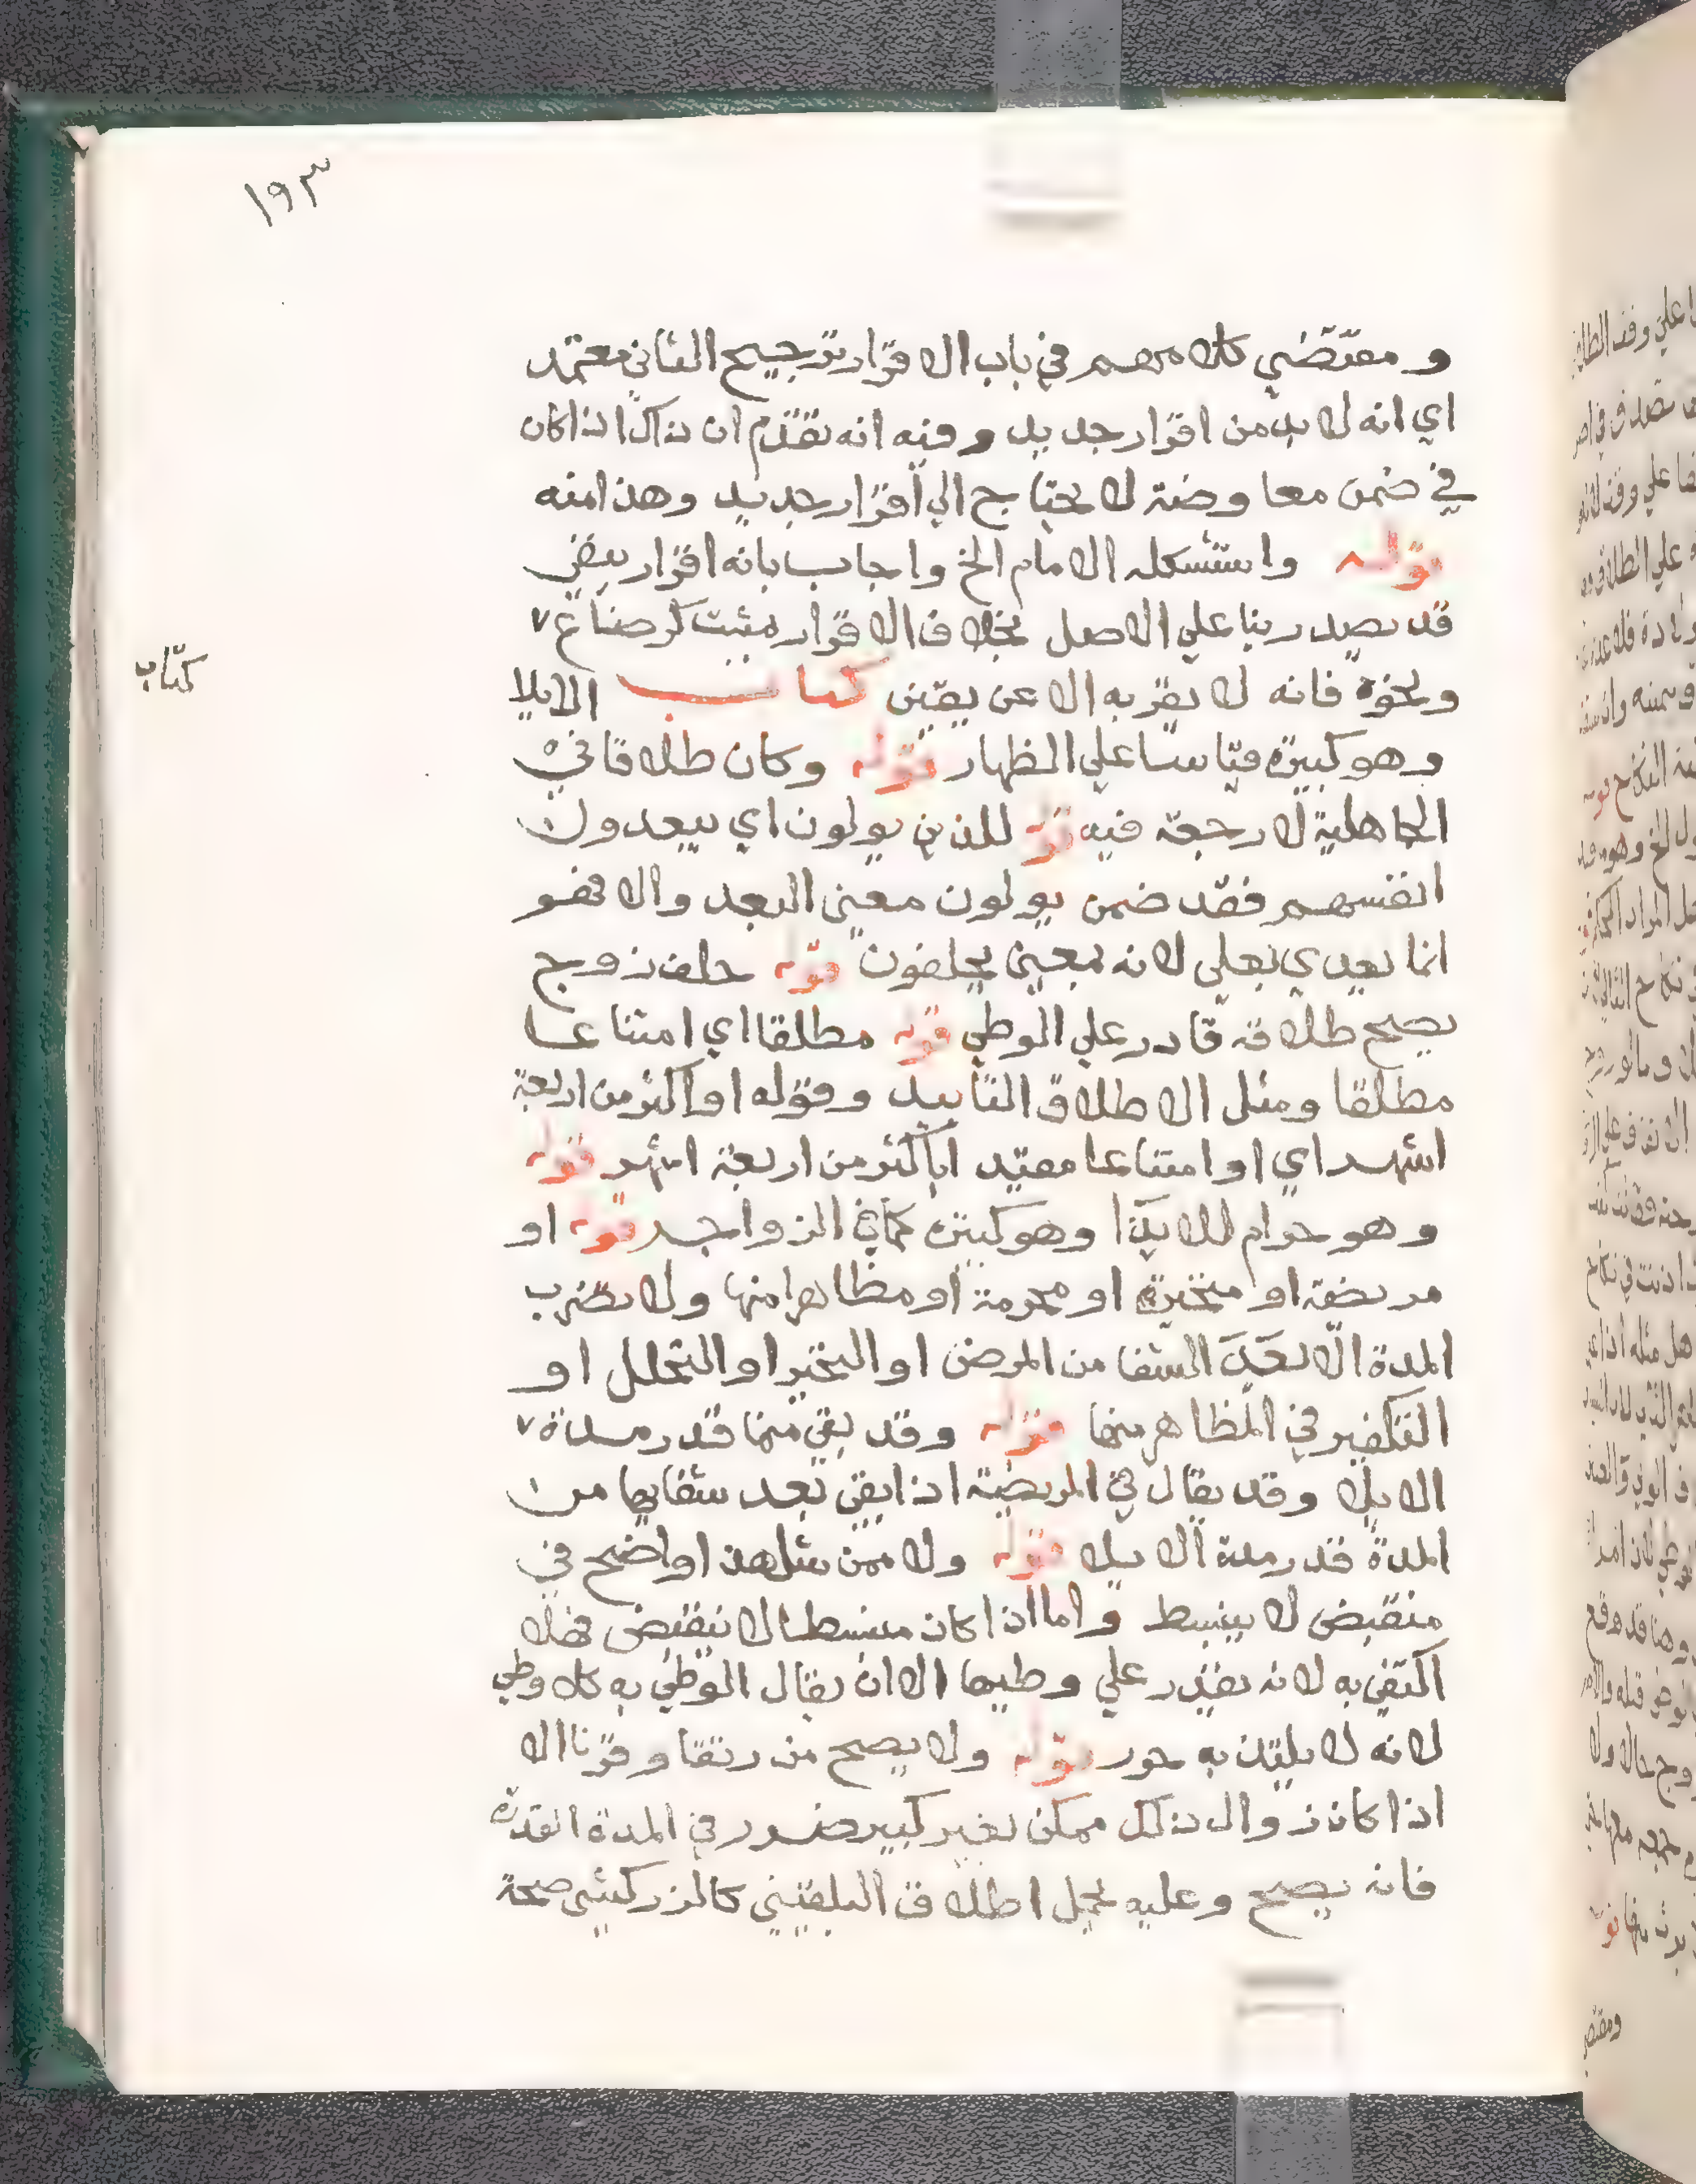 ١٩٣
ومقتضي كلامهم في باب الاقرار ترجيح الثاني معتمد
اي انه لا بد من اقرار جديد وفيه انه تقدم ان ذاك اذا كان
في ضمن معاوضة لا يحتاج الي اقرار جديد وهذا منه
قوله واستشكله الامام الخ واجاب بانه اقرار بنفي
قد يصدر بنا علي الاصل بخلاف الاقرار مثبت كرضاع
ونحوه فانه لا يقر به الا عن يقين كتاب الايلا
كتاب
وهو كبيرة قياسا علي الظهار قوله وكان طلاقا في
الجاهلية لا رجعة فيه قوله للذين يولون اي يبعدون
انفسهم فقد ضمن يولون معنى البعد والا فهو
انما يعدي بعلى لانه بمعنى يحلفون قوله حلف زوج
يصح طلاقه قادر علي الوطي قوله مطلقا اي امتناعا
مطلقا ومثل الاطلاق التابيد وقوله او اكثر من اربعة
اشهر اي او امتناعا مقيدا باكثر من اربعة اشهر قوله
وهو حرام للايذا وهو كبيرة كما في الزواجر قوله او
مريضة او متحيرة او محرمة او مظاهرا منها ولا تضرب
المدة الا بعد الشفا من المرض او التحير او التحلل او
التكفير في المظاهر منها قوله وقد بقي منها قدر مدة
الايلا وقد يقال في المريضة اذا بقي بعد شفايها من
المدة قدر مدة الايلا قوله ولا ممن شل هذا واضح في
منقبض لا ينبسط واما اذا كان منبسطا لا ينقبض فهلا
اكتفي به لانه يقدر علي وطيها الا ان يقال الوطي به كلا وطي
لانه لا يلتذ به حرر قوله ولا يصح من رتقا وقرنا الا
اذا كان زوال ذلك ممكن بغير كبير ضرر في المدة المقدرة
فانه يصح وعليه يحمل اطلاق البلقيني كالزركشي صحة